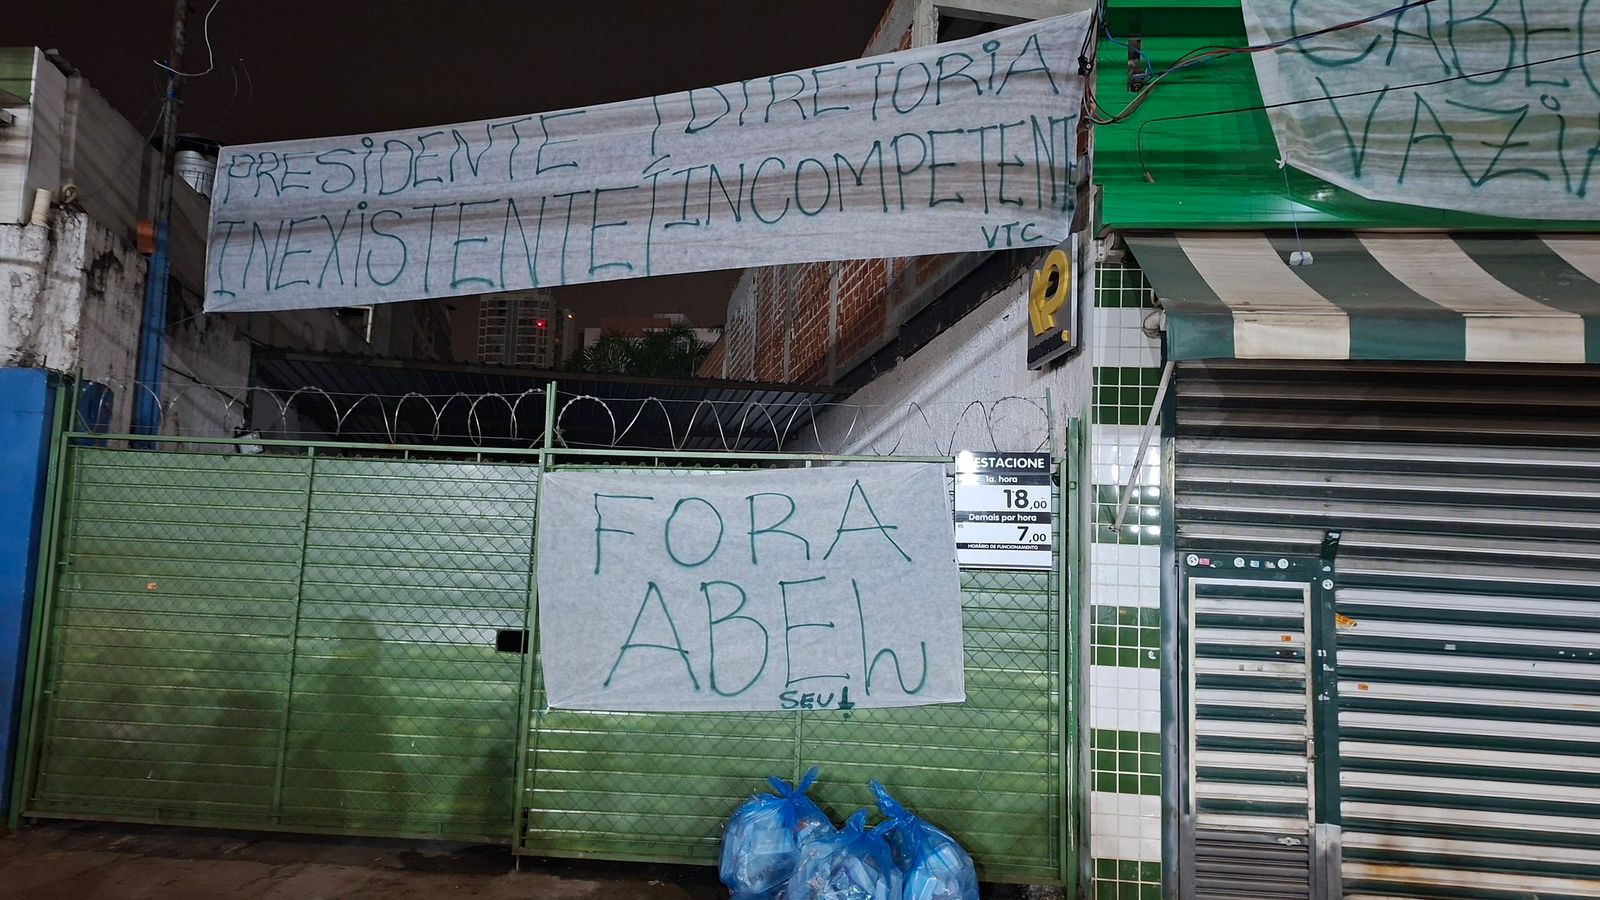 PRESIDENTE / DIRETORIA
INEXISTENTE / INCOMPETENTE
VTC
VAZIA
ESTACIONE
1a. hora
18,00
Demais por hora
R$ 7,00
HORÁRIO DE FUNCIONAMENTO
FORA
ABEL
SEU